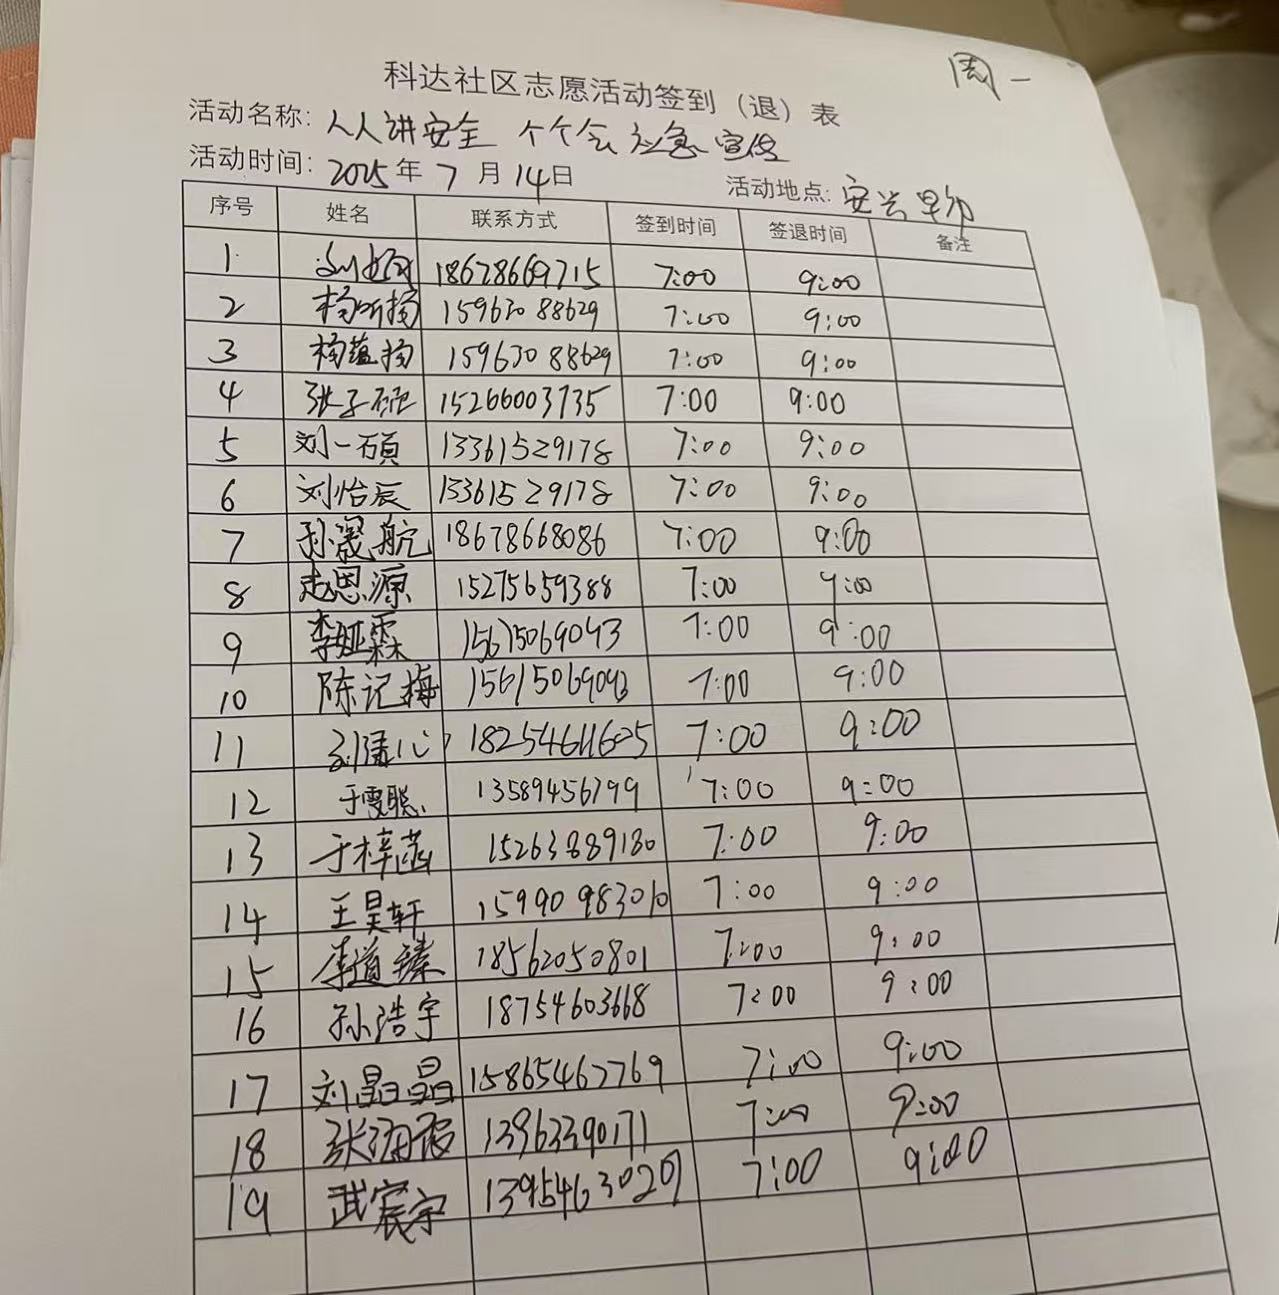 周一
科达社区志愿活动签到（退）表
活动名称: 人人讲安全 个个会应急宣传
活动时间: 2025年 7 月 14日 活动地点: 安兴早市
序号 姓名 联系方式 签到时间 签退时间 备注
1 18678669715 7:00 9:00
2 杨昕扬 15963088629 7:00 9:00
3 杨蕴扬 15963088629 7:00 9:00
4 张子硕 15266003735 7:00 9:00
5 刘一硕 13361529178 7:00 9:00
6 刘怡辰 13361529178 7:00 9:00
7 孙晟航 18678668086 7:00 9:00
8 赵思源 15275659388 7:00 9:00
9 李娅霖 15615069043 7:00 9:00
10 陈记梅 15615069043 7:00 9:00
11 18254611625 7:00 9:00
12 于雯聪 13589456799 7:00 9:00
13 于梓菡 15263889180 7:00 9:00
14 王昊轩 15990983010 7:00 9:00
15 李道臻 18562050801 7:00 9:00
16 孙浩宇 18754603668 7:00 9:00
17 刘晶晶 15865467769 7:00 9:00
18 13963390171 7:00 9:00
19 武宸宇 13954630209 7:00 9:00